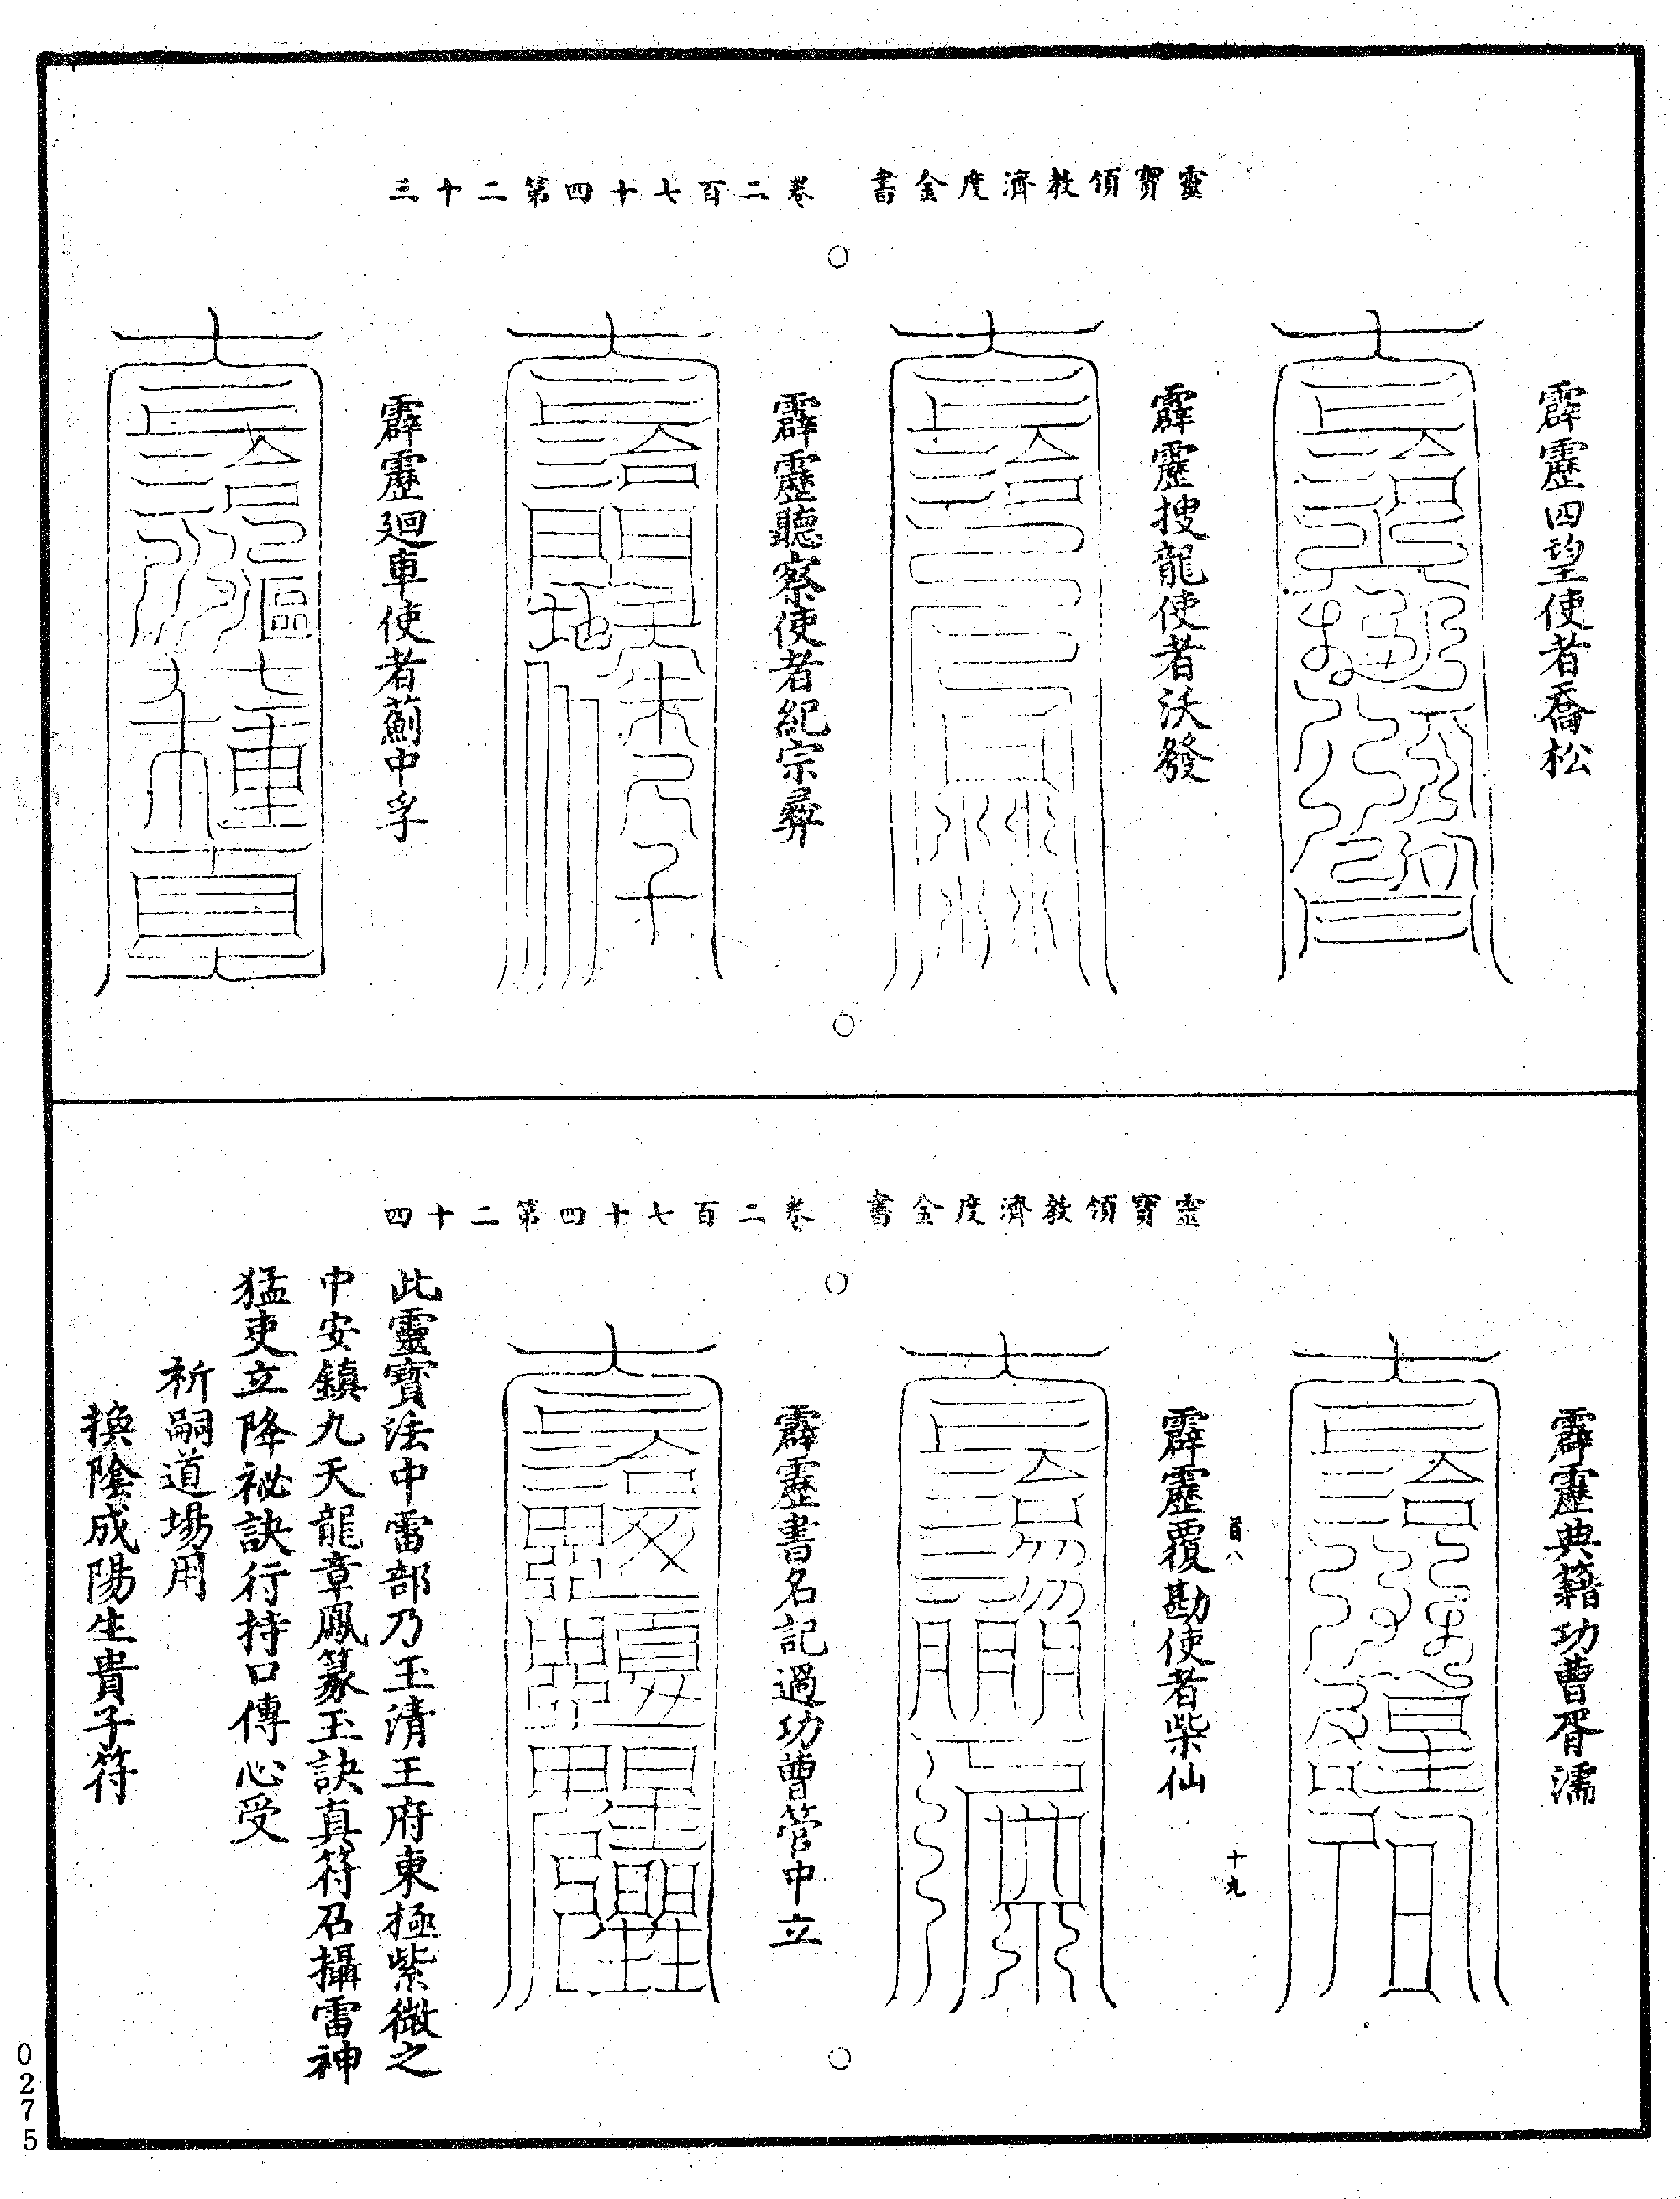 靈寶領教濟度金書　卷二百七十四第二十三
霹靂四望使者喬松
霹靂搜龍使者沃發
霹靂聽察使者紀宗彝
霹靂廻車使者薊中孚
靈寶領教濟度金書　卷二百七十四第二十四
霹靂典籍功曹胥濡
百八
十九
霹靂覆勘使者柴仙
霹靂書名記過功曹管中立
此靈寶法中雷部乃玉清王府東極紫微之
中安鎮九天龍章鳳篆玉訣真符召攝雷神
猛吏立降祕訣行持口傳心受
祈嗣道場用
換陰成陽生貴子符
0275